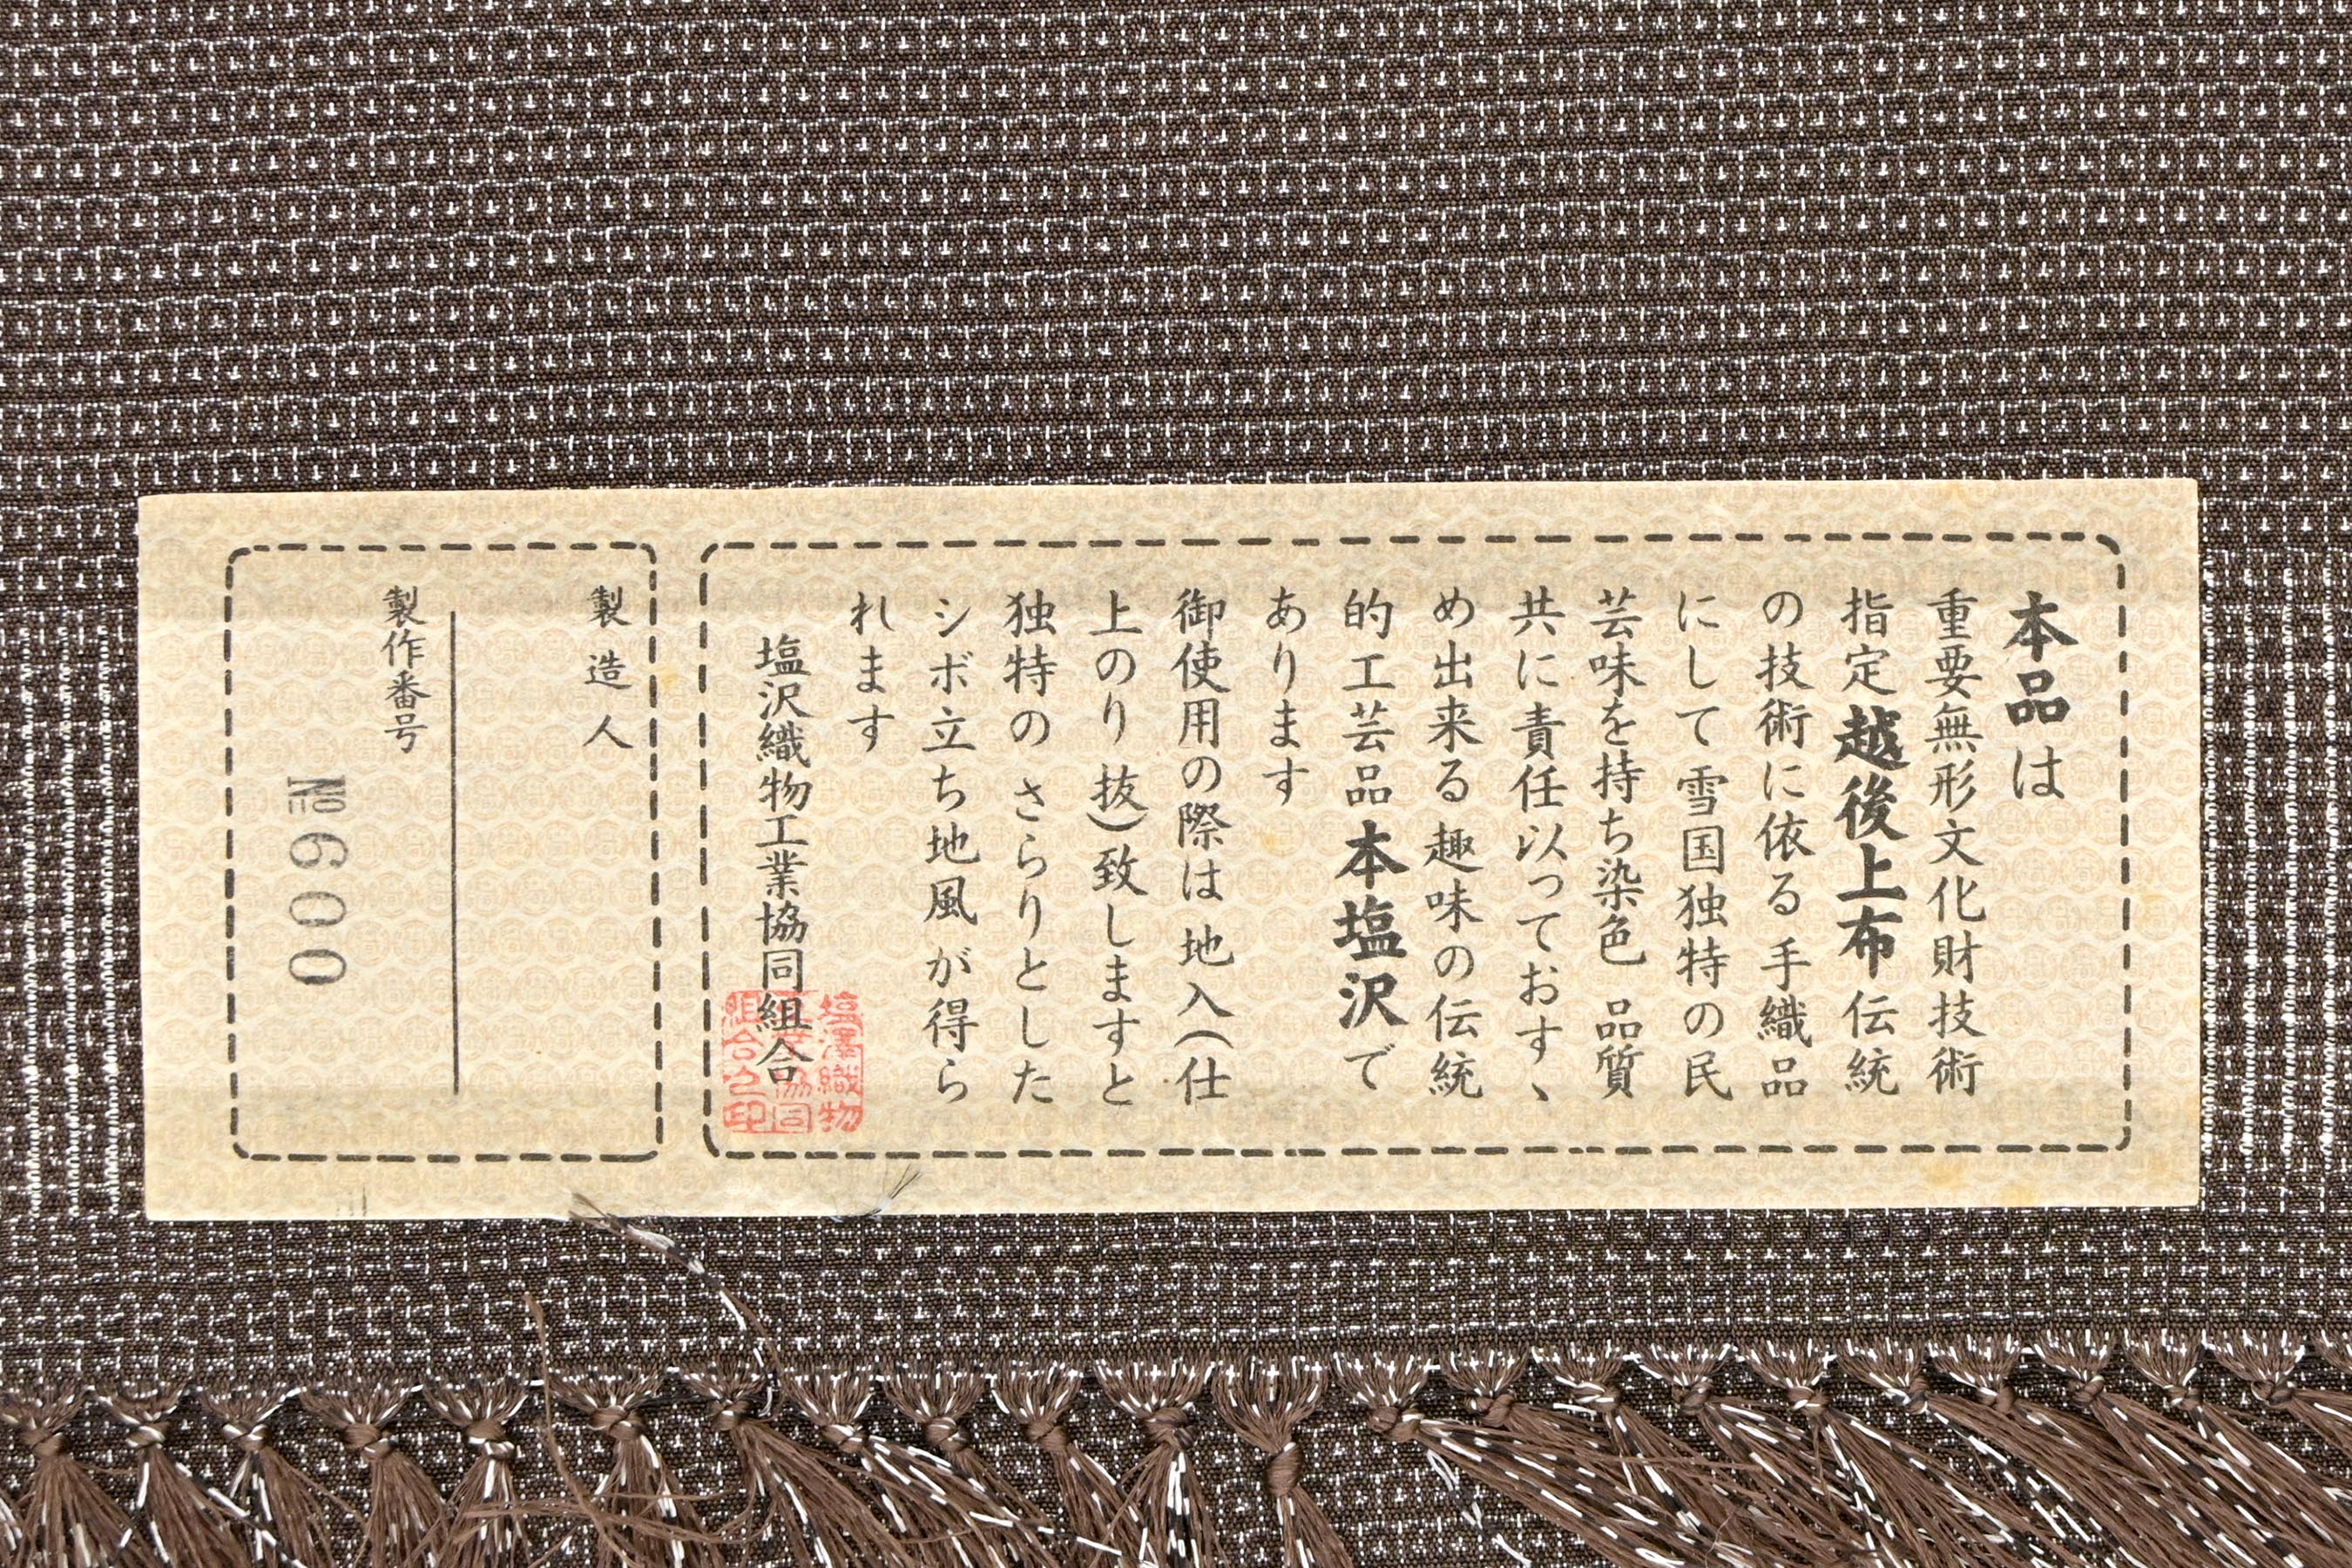 本品は
重要無形文化財技術
指定越後上布伝統
の技術に依る手織品
にして雪国独特の民
芸味を持ち染色 品質
共に責任以っておすゝ
め出来る趣味の伝統
的工芸品本塩沢で
あります
御使用の際は地入(仕
上のり抜)致しますと
独特のさらりとした
シボ立ち地風が得ら
れます
塩沢織物工業協同組合
塩澤織物
工業協同
組合之印
製造人
製作番号
№600